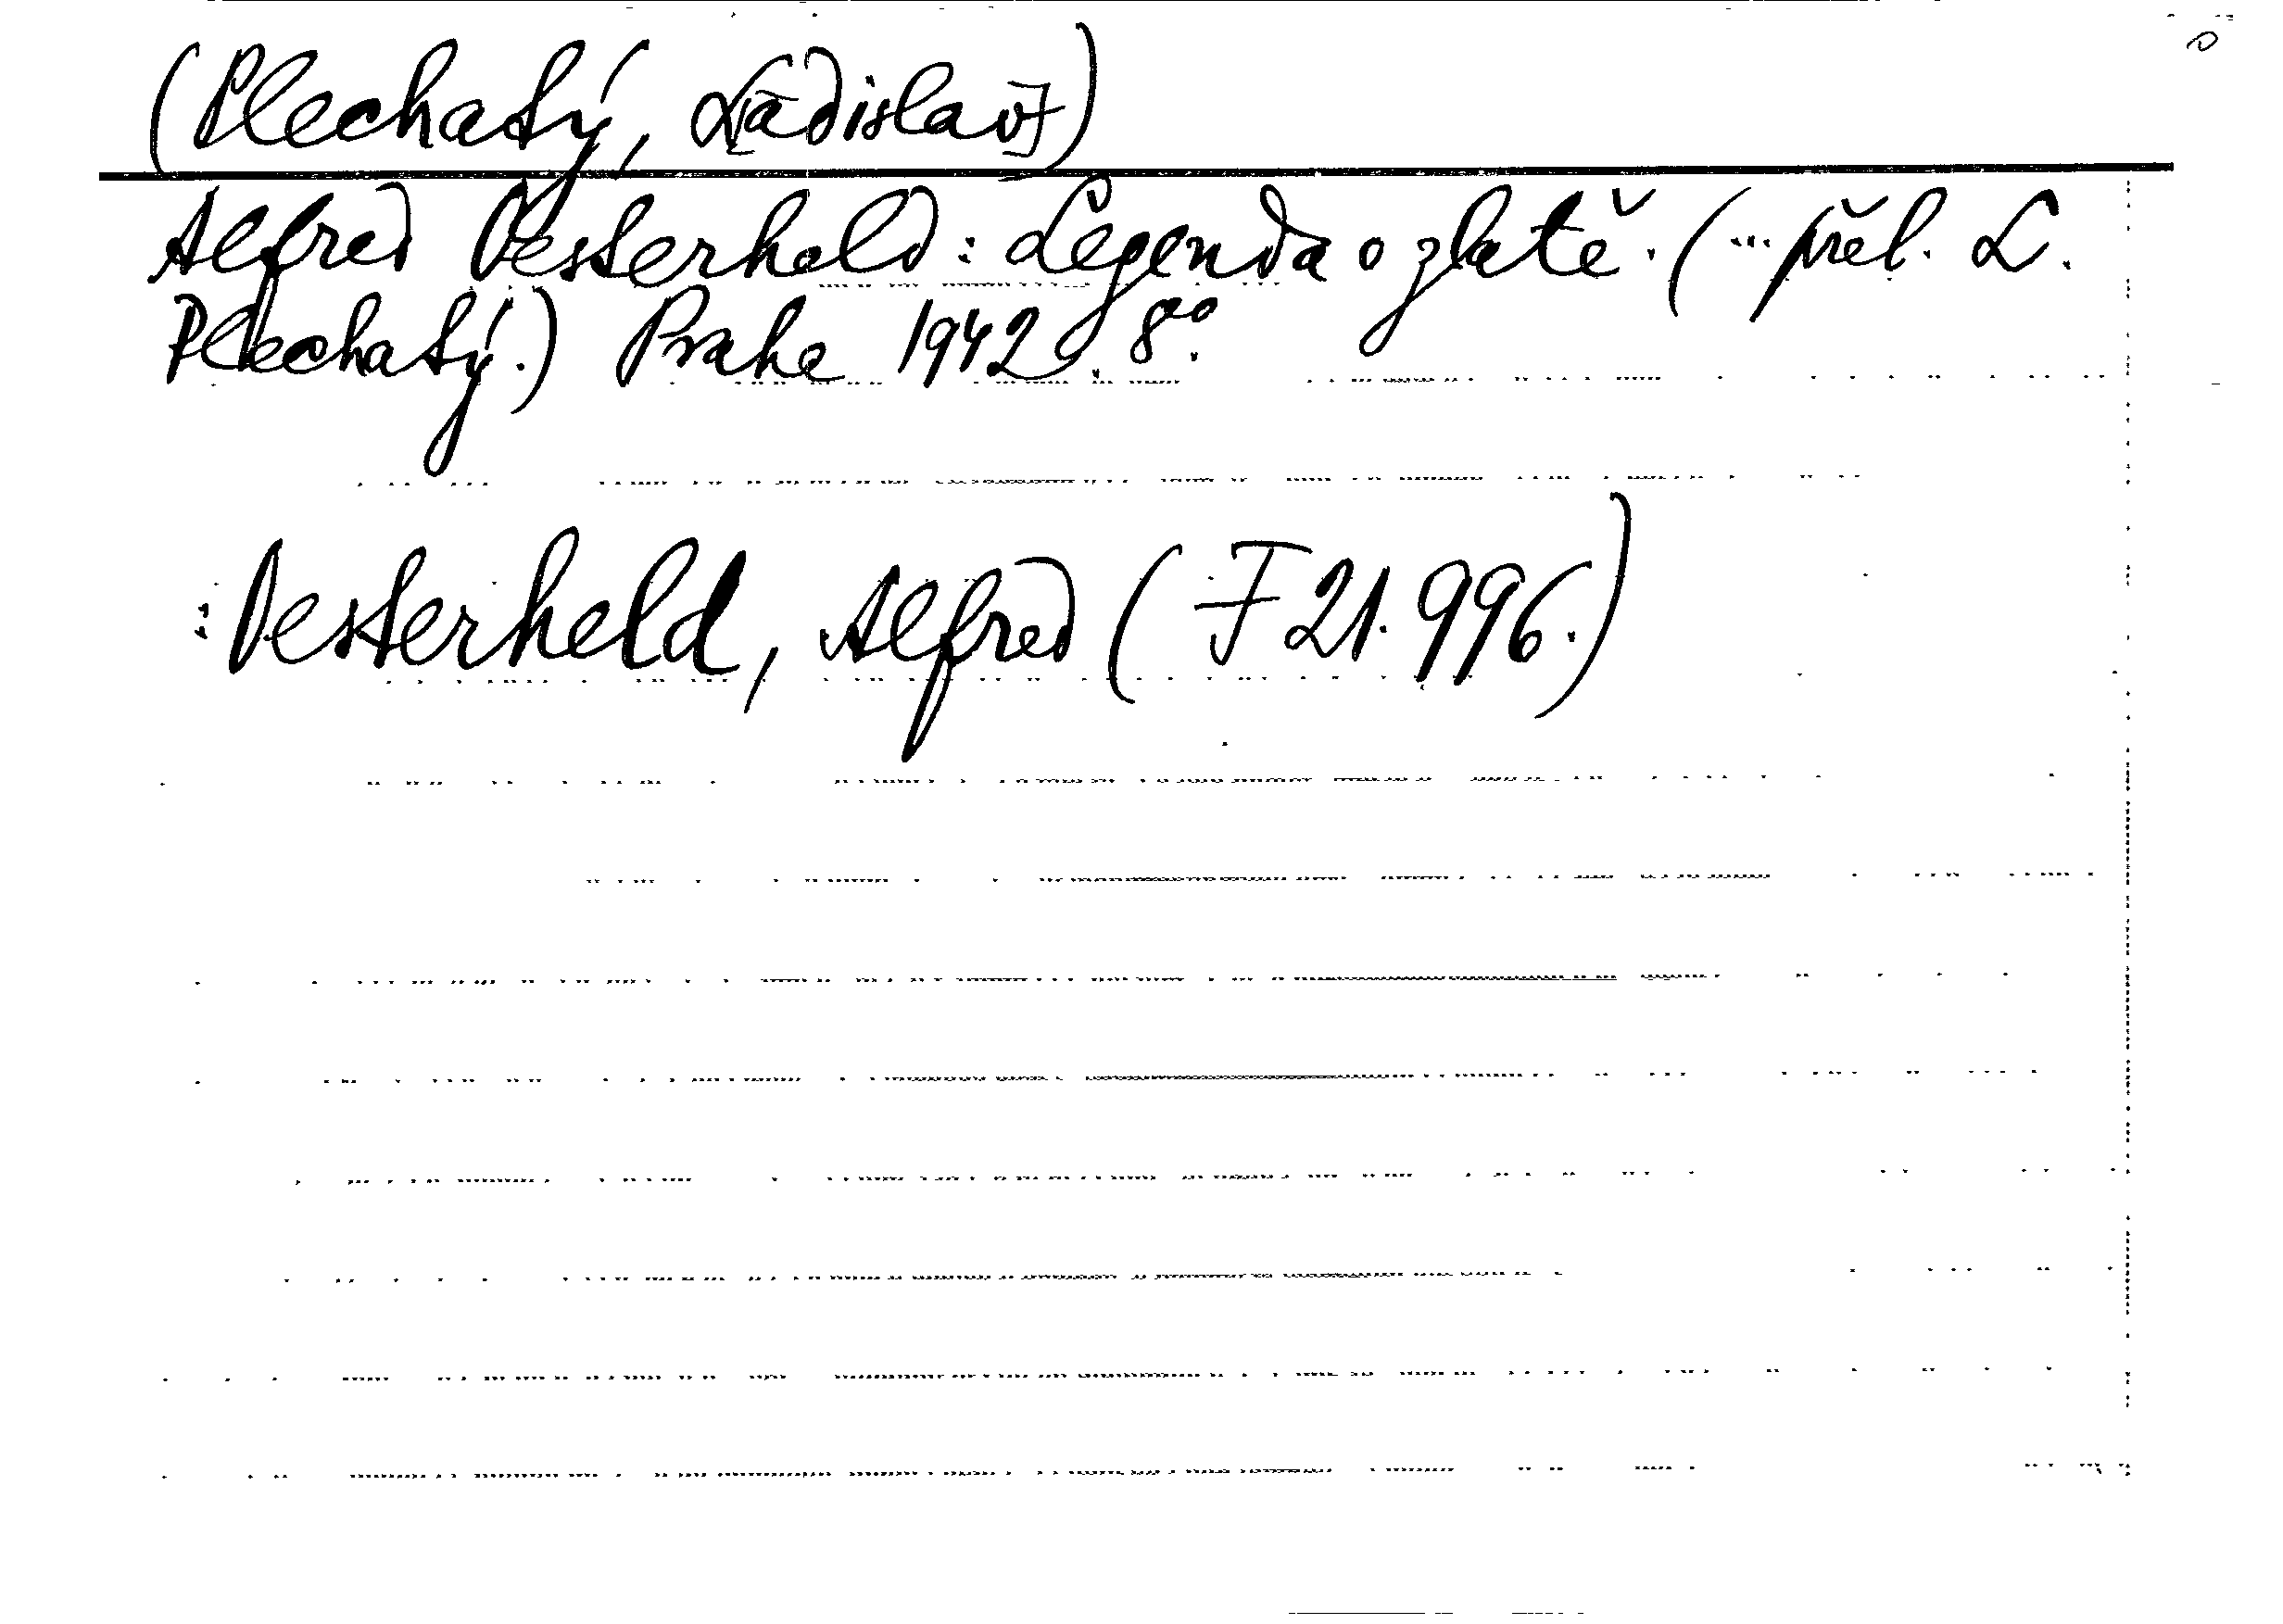 (Plechatý, L[adislav])
Alfred Vesterheld: Legenda o zlatě. (... přel. L.
Plechatý.) Praha 1942. 8°.
: Vesterheld, Alfred (F 21.996.)